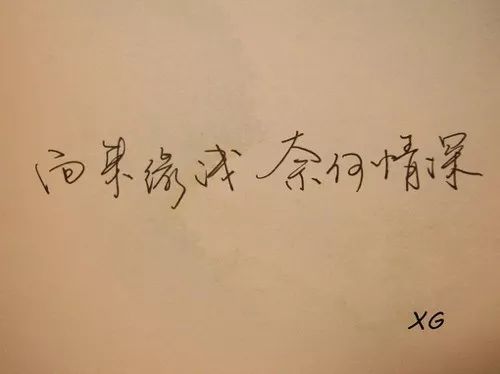 向来缘浅 奈何情深
XG